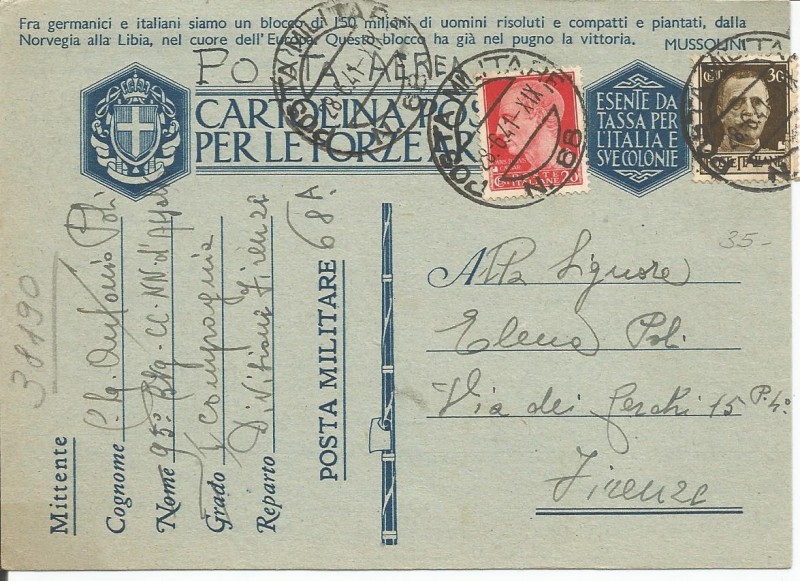 Fra germanici e italiani siamo un blocco di 150 milioni di uomini risoluti e compatti e piantati, dalla
Norvegia alla Libia, nel cuore dell'Europa. Questo blocco ha già nel pugno la vittoria. MUSSOLINI
POSTA AEREA
CARTOLINA POS
PER LE FORZE AR
ESENTE DA
TASSA PER
L'ITALIA E
SVE COLONIE
POSTA MILITARE
28.6.41-XIX
N. 68
POSTA MILITARE
28.6.41-XIX
N. 68
POSTA MILITARE
N.
POSTE
ITALIANE 20
30
POSTE ITALIANE
35-
38190
Mittente
Cognome Antonio Poli
Nome 95° Btg. CC. NN. d'
Grado 1 Compagnia
Reparto Divisione Firenze
POSTA MILITARE 68 A.
Alla Signora
Elena Poli
Via dei 15 P. 4°
Firenze